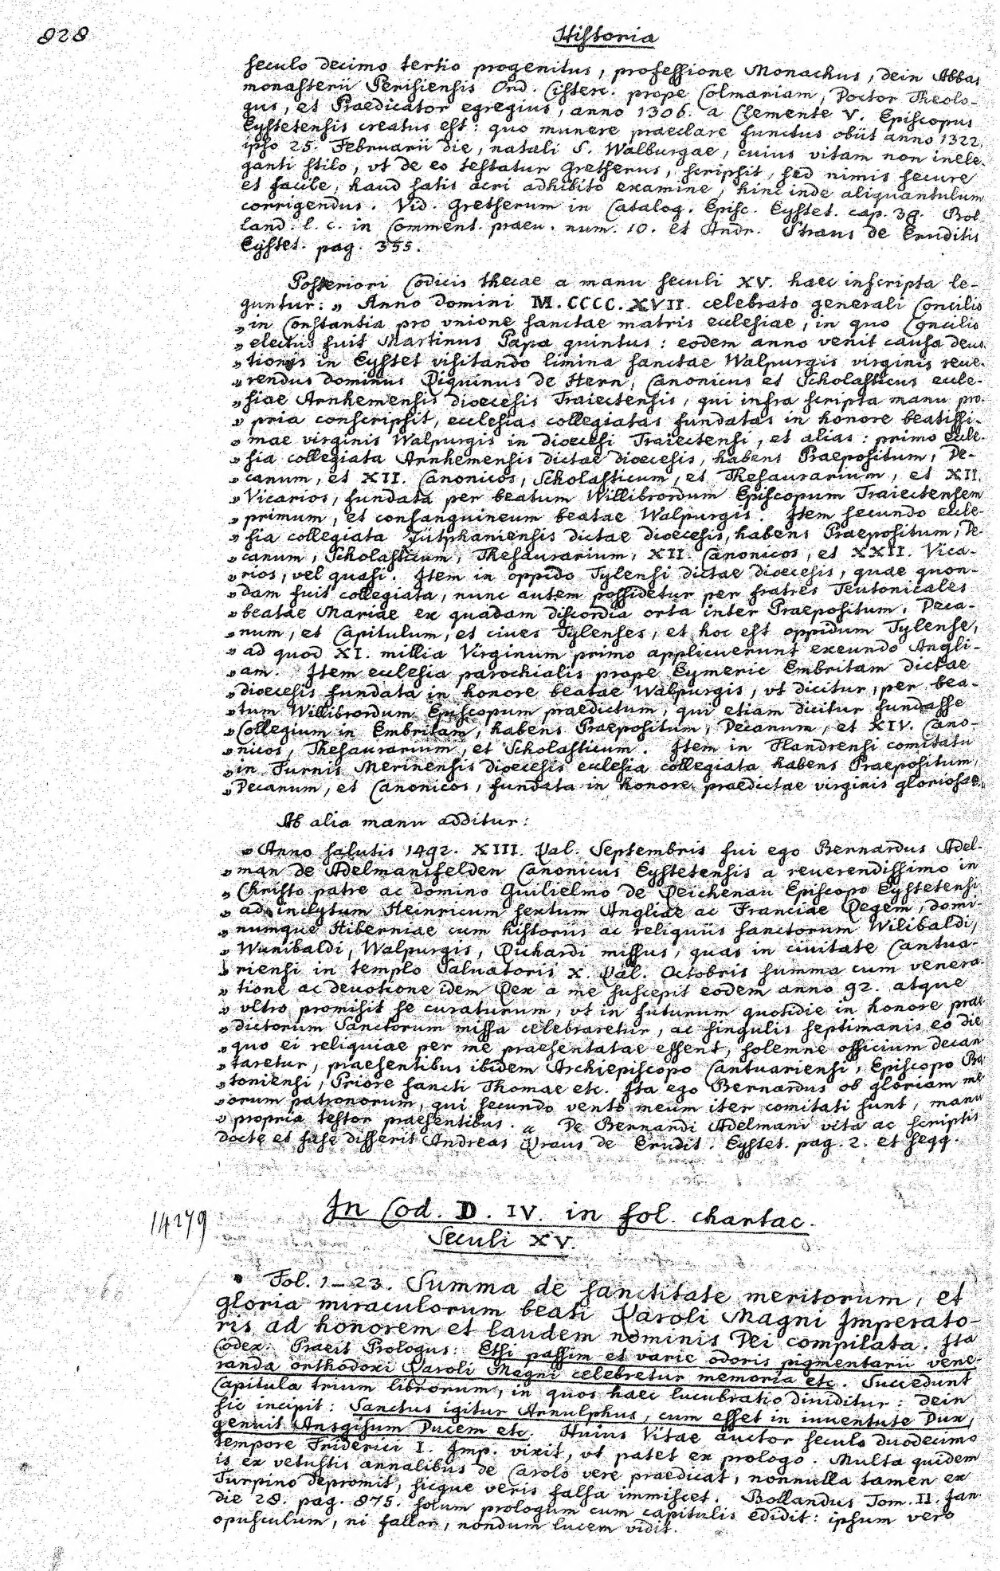 828
Historia
seculo decimo tertio progenitus, professione Monachus, dein Abbas
monasterii Perisiensis Ord. Cisterc. prope Colmariam, Doctor Theolo-
gus, et Praedicator egregius, anno 1306. a Clemente V. Episcopus
Eystetensis creatus est: quo munere praeclare functus obiit anno 1322.
ipso 25. Februarii die, natali S. Walburgae, cuius vitam non inele-
ganti stilo, vt de eo testatur Gretserus, scripsit, sed nimis secure
et facile, haud satis acri adhibito examine, hinc inde aliquantulum
corrigendus. Vid. Gretserum in Catalog. Episc. Eystet. cap. 38. Bol
land. l. c. in Comment. praeu. num. 10. et Andr. Straus de Eruditis
Eystet. pag. 355.
Posteriori Codicis thecae a manu seculi XV. haec inscripta le-
guntur: „ Anno Domini M.CCCC.XVII. celebrato generali Concilio
„ in Constantia pro vnione sanctae matris ecclesiae, in quo Concilio
„ electus fuit Martinus Papa quintus: eodem anno venit causa deuo
„ tionis in Eystet visitando limina sanctae Walpurgis virginis reue-
„ rendus dominus Riquinus de Hern, Canonicus et Scholasticus eccle-
„ siae Arnhemensis dioecesis Traiectensis, qui infra scripta manu pro-
„ pria conscripsit, ecclesias collegiatas fundatas in honore beatissi-
„ mae virginis Walpurgis in dioecesi Traiectensi, et alias: primo Eccle-
„ sia collegiata Arnhemensis dictae dioecesis, habens Praepositum, De-
„ canum, et XII. Canonicos, Scholasticum, et Thesaurarium, et XII.
„ Vicarios, fundata per beatum Willibrordum Episcopum Traiectensem
„ primum, et consanguineum beatae Walpurgis. Item secundo eccle-
„ sia collegiata Zutphaniensis dictae dioecesis, habens Praepositum, De-
„ canum, Scholasticum, Thesaurarium, XII. Canonicos, et XXII. Vica-
„ rios, vel quasi. Item in oppido Tylensi dictae dioecesis, quae quon-
„ dam fuit collegiata, nunc autem possidetur per fratres Teutonicales
„ beatae Mariae ex quadam discordia orta inter Praepositum, Deca-
„ num, et Capitulum, et ciues Tylenses, et hoc est oppidum Tylense,
„ ad quod XI. millia Virginum primo applicuerunt exeundo Angli-
„ am. Item ecclesia parochialis prope Eymeric Embritam dictae
„ dioecesis fundata in honore beatae Walpurgis, vt dicitur, per bea-
„ tum Willibrordum Episcopum praedictum, qui etiam dicitur fundasse
„ Collegium in Embritam, habens Praepositum, Decanum, et XIV. Cano-
„ nicos, Thesaurarium, et Scholasticum. Item in Flandrensi comitatu
„ in Furnis Merinensis dioecesis ecclesia collegiata habens Praepositum,
„ Decanum, et Canonicos, fundata in honore praedictae virginis gloriosae.
Ab alia manu additur:
„ Anno salutis 1492. XIII. Kal. Septembris fui ego Bernardus Adel-
„ man de Adelmansfelden Canonicus Eystetensis a reuerendissimo in
„ Christo patre ac domino Guilielmo de Reichenau Episcopo Eystetensi
„ ad inclytum Heinricum sextum Angliae ac Franciae Regem, domi-
„ numque Hiberniae cum historiis ac reliquiis sanctorum Wilibaldi,
„ Wunibaldi, Walpurgis, Richardi missus, quas in ciuitate Cantua-
„ riensi in templo Saluatoris X. Kal. Octobris summa cum venera-
„ tione ac deuotione idem Rex a me suscepit eodem anno 92. atque
„ vltro promisit se curaturum, vt in futurum quotidie in honore prae
„ dictorum Sanctorum missa celebraretur, ac singulis septimanis eo die
„ quo ei reliquiae per me praesentatae essent, solemne officium decan
„ taretur, praesentibus ibidem Archiepiscopo Cantuariensi, Episcopo Ba
„ toniensi, Priore sancti Thomae etc. Ita ego Bernardus ob gloriam me
„ orum patronorum, qui secundo vento meum iter comitati sunt, manu
„ propria testor praesentibus. „ De Bernardi Adelmani vita ac scriptis
docte et fuse disserit Andreas Straus de Erudit. Eystet. pag. 2. et seqq.
14279
In Cod. D. IV. in fol. chartac.
Seculi XV.
Fol. 1-23. Summa de sanctitate meritorum, et
gloria miraculorum beati Karoli Magni Imperato-
ris ad honorem et laudem nominis Dei compilata. Ita
Codex. Praeit Prologus: Etsi passim et varie odoris pigmentarii vene-
randa orthodoxi Karoli Magni celebretur memoria etc. Succedunt
Capitula trium librorum, in quos haec lucubratio diuiditur: dein
sic incipit: Sanctus igitur Arnulphus, cum esset in iuuentute Dux,
genuit Ansgisum Ducem etc. Huius Vitae auctor seculo duodecimo
tempore Friderici I. Imp. vixit, vt patet ex prologo. Multa quidem
is ex vetustis annalibus de Carolo vere praedicat, nonnulla tamen ex
Turpino depromit, sicque veris falsa immiscet. Bollandus Tom. II. Jan.
die 28. pag. 875. solum prologum cum capitulis edidit: ipsum vero
opusculum, ni fallor, nondum lucem vidit.